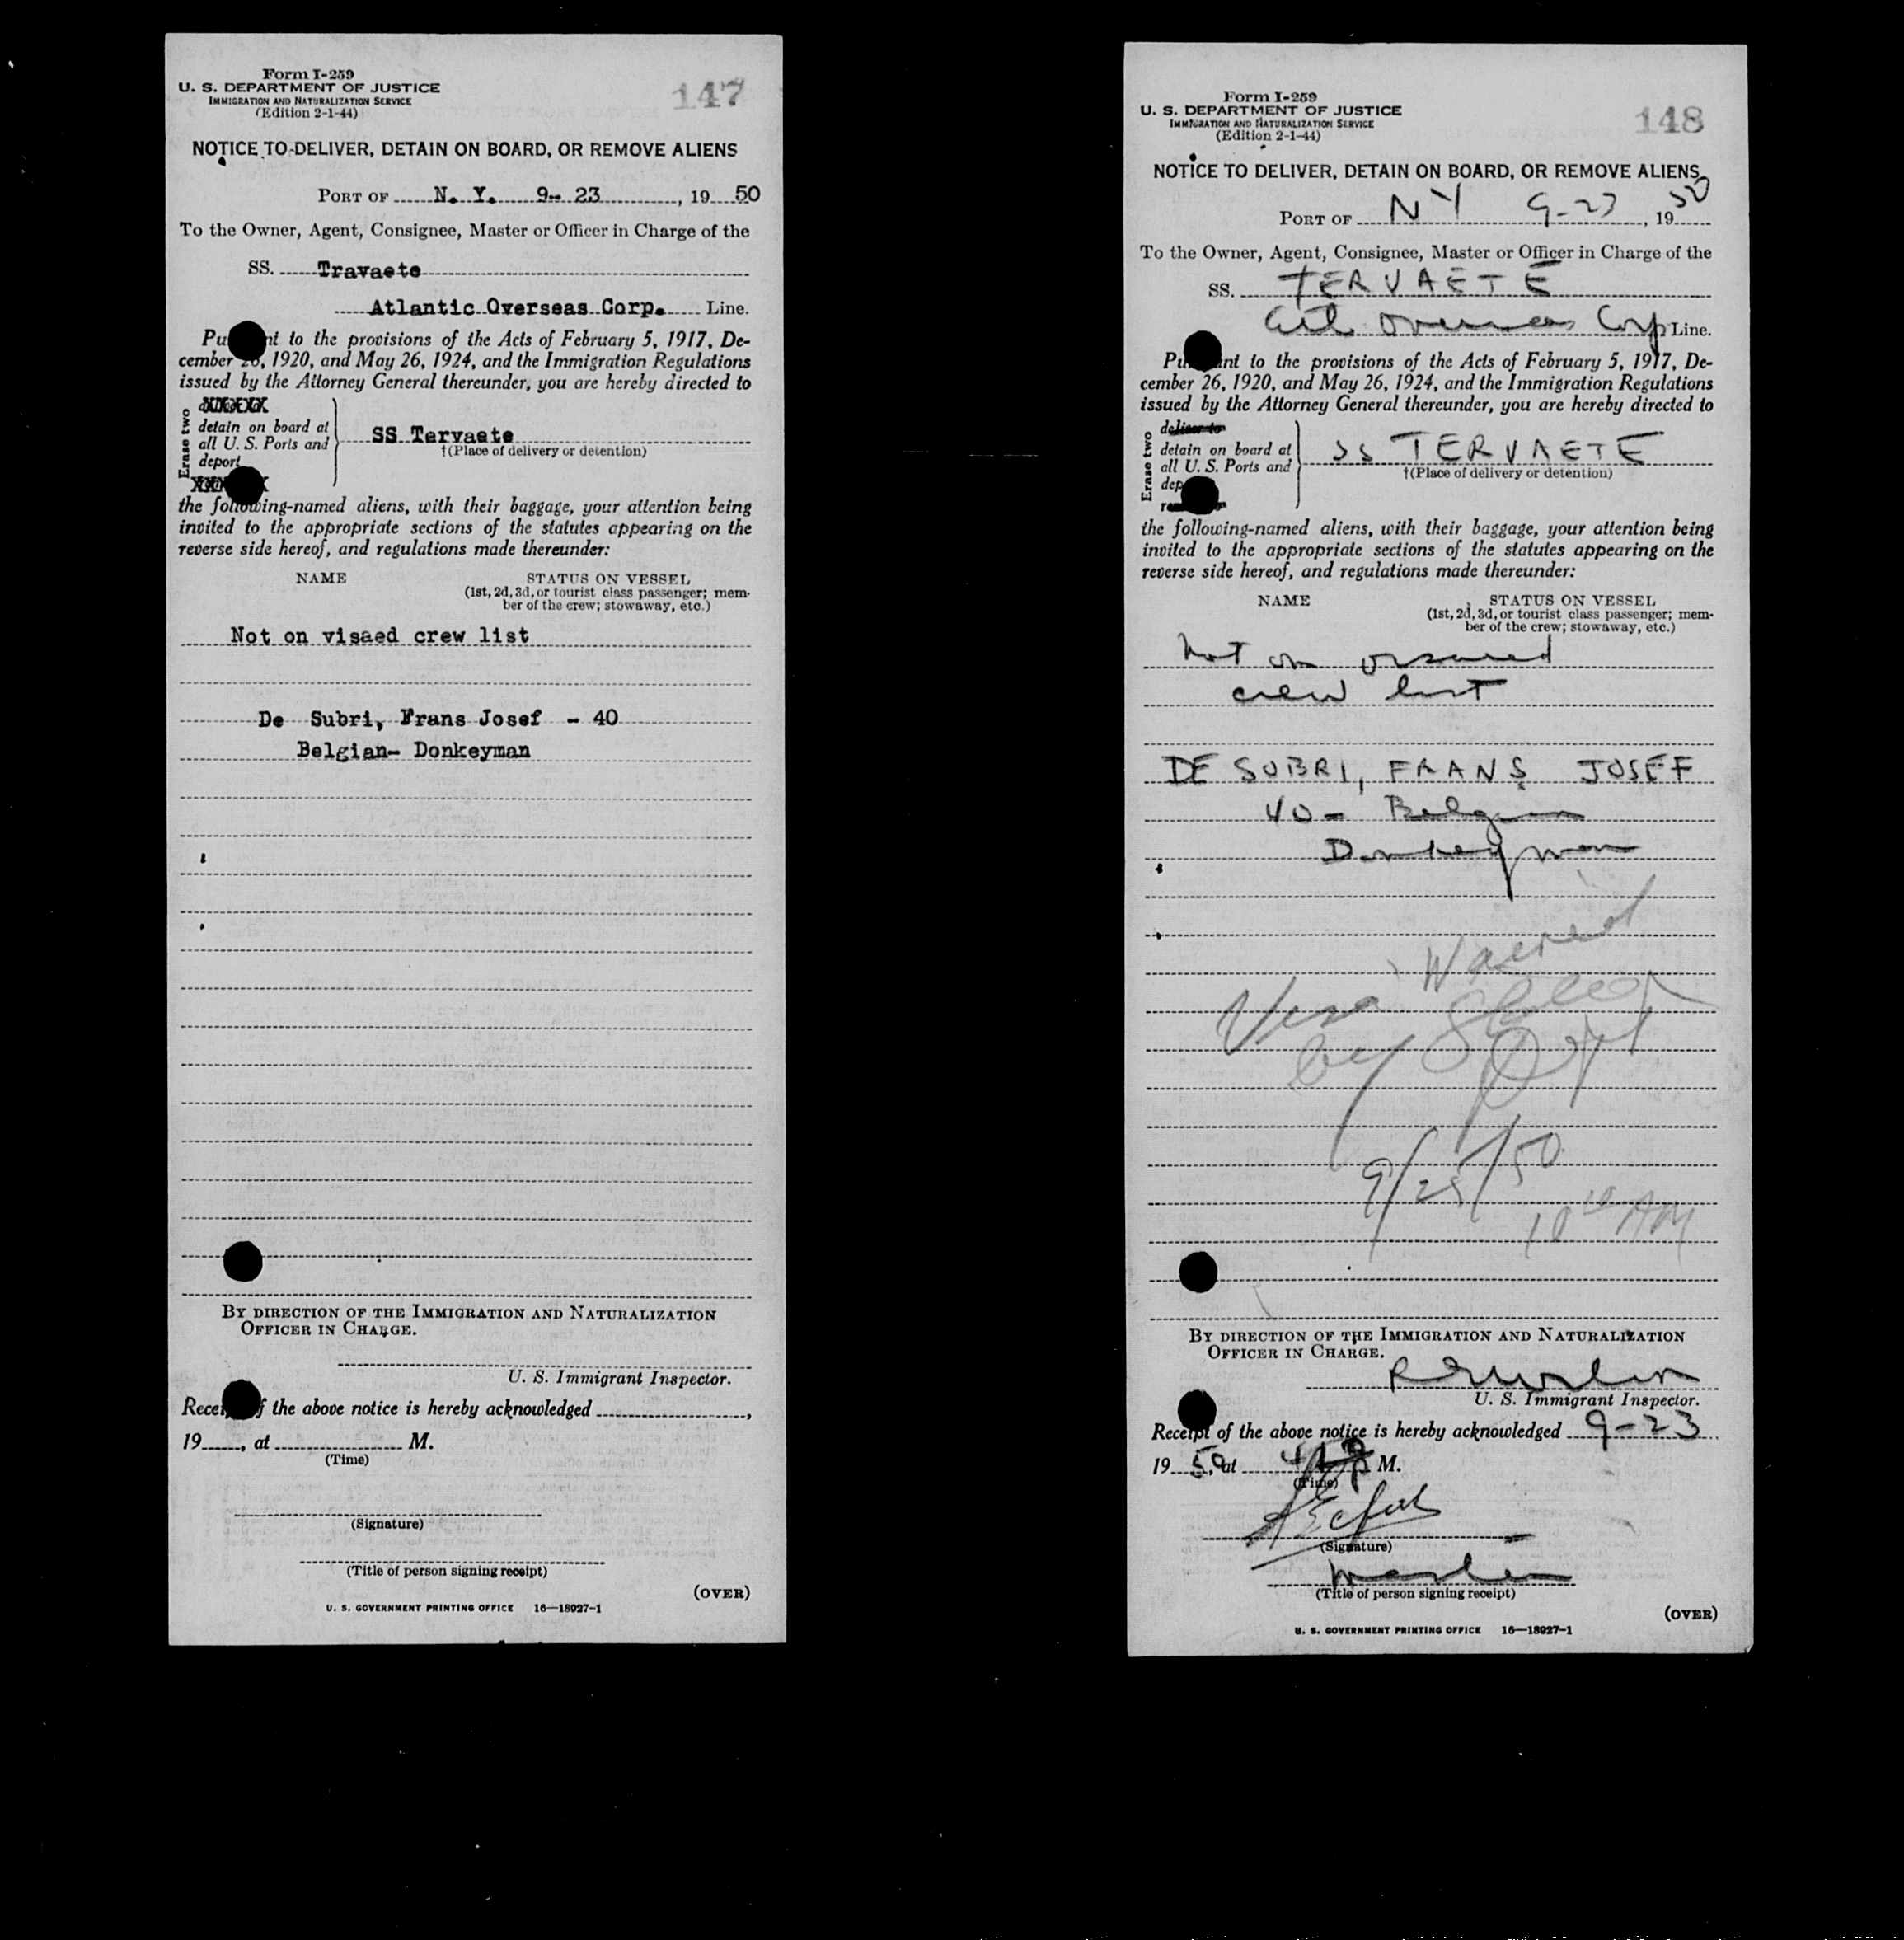 Form I-259
U. S. DEPARTMENT OF JUSTICE
IMMIGRATION AND NATURALIZATION SERVICE
(Edition 2-1-44)
147
NOTICE TO DELIVER, DETAIN ON BOARD, OR REMOVE ALIENS
PORT OF N. Y. 9-23, 1950
To the Owner, Agent, Consignee, Master or Officer in Charge of the
SS. Travaete
Atlantic Overseas Corp. Line.
to the provisions of the Acts of February 5, 1917, De-
cember 26, 1920, and May 26, 1924, and the Immigration Regulations
issued by the Attorney General thereunder, you are hereby directed to
Erase two
detain on board at
all U. S. Ports and
deport
SS Tervaete
†(Place of delivery or detention)
the following-named aliens, with their baggage, your attention being
invited to the appropriate sections of the statutes appearing on the
reverse side hereof, and regulations made thereunder:
NAME STATUS ON VESSEL
(1st, 2d, 3d, or tourist class passenger; mem-
ber of the crew; stowaway, etc.)
Not on visaed crew list
De Subri, Frans Josef - 40
Belgian- Donkeyman
BY DIRECTION OF THE IMMIGRATION AND NATURALIZATION
OFFICER IN CHARGE.
U. S. Immigrant Inspector.
Receipt of the above notice is hereby acknowledged ,
19 , at M.
(Time)
(Signature)
(Title of person signing receipt)
(OVER)
U. S. GOVERNMENT PRINTING OFFICE 16—18027-1
Form I-259
U. S. DEPARTMENT OF JUSTICE
IMMIGRATION AND NATURALIZATION SERVICE
(Edition 2-1-44)
148
NOTICE TO DELIVER, DETAIN ON BOARD, OR REMOVE ALIENS
PORT OF NY 9-23, 1950
To the Owner, Agent, Consignee, Master or Officer in Charge of the
SS. TERVAETE
Atl Overseas Corp Line.
Pursuant to the provisions of the Acts of February 5, 1917, De-
cember 26, 1920, and May 26, 1924, and the Immigration Regulations
issued by the Attorney General thereunder, you are hereby directed to
Erase two
deliver to
detain on board at
all U. S. Ports and
SS TERVAETE
†(Place of delivery or detention)
the following-named aliens, with their baggage, your attention being
invited to the appropriate sections of the statutes appearing on the
reverse side hereof, and regulations made thereunder:
NAME STATUS ON VESSEL
(1st, 2d, 3d, or tourist class passenger; mem-
ber of the crew; stowaway, etc.)
Not on visaed
crew list
DE SUBRI, FRANS JOSEF
40 - Belgian
Donkeyman
Visa Waived
by State
Dept
9/25/50
10 10 AM
BY DIRECTION OF THE IMMIGRATION AND NATURALIZATION
OFFICER IN CHARGE.
U. S. Immigrant Inspector.
Receipt of the above notice is hereby acknowledged 9-23
1950, at M.
(Time)
(Signature)
Master
(Title of person signing receipt)
(OVER)
U. S. GOVERNMENT PRINTING OFFICE 16—18027-1